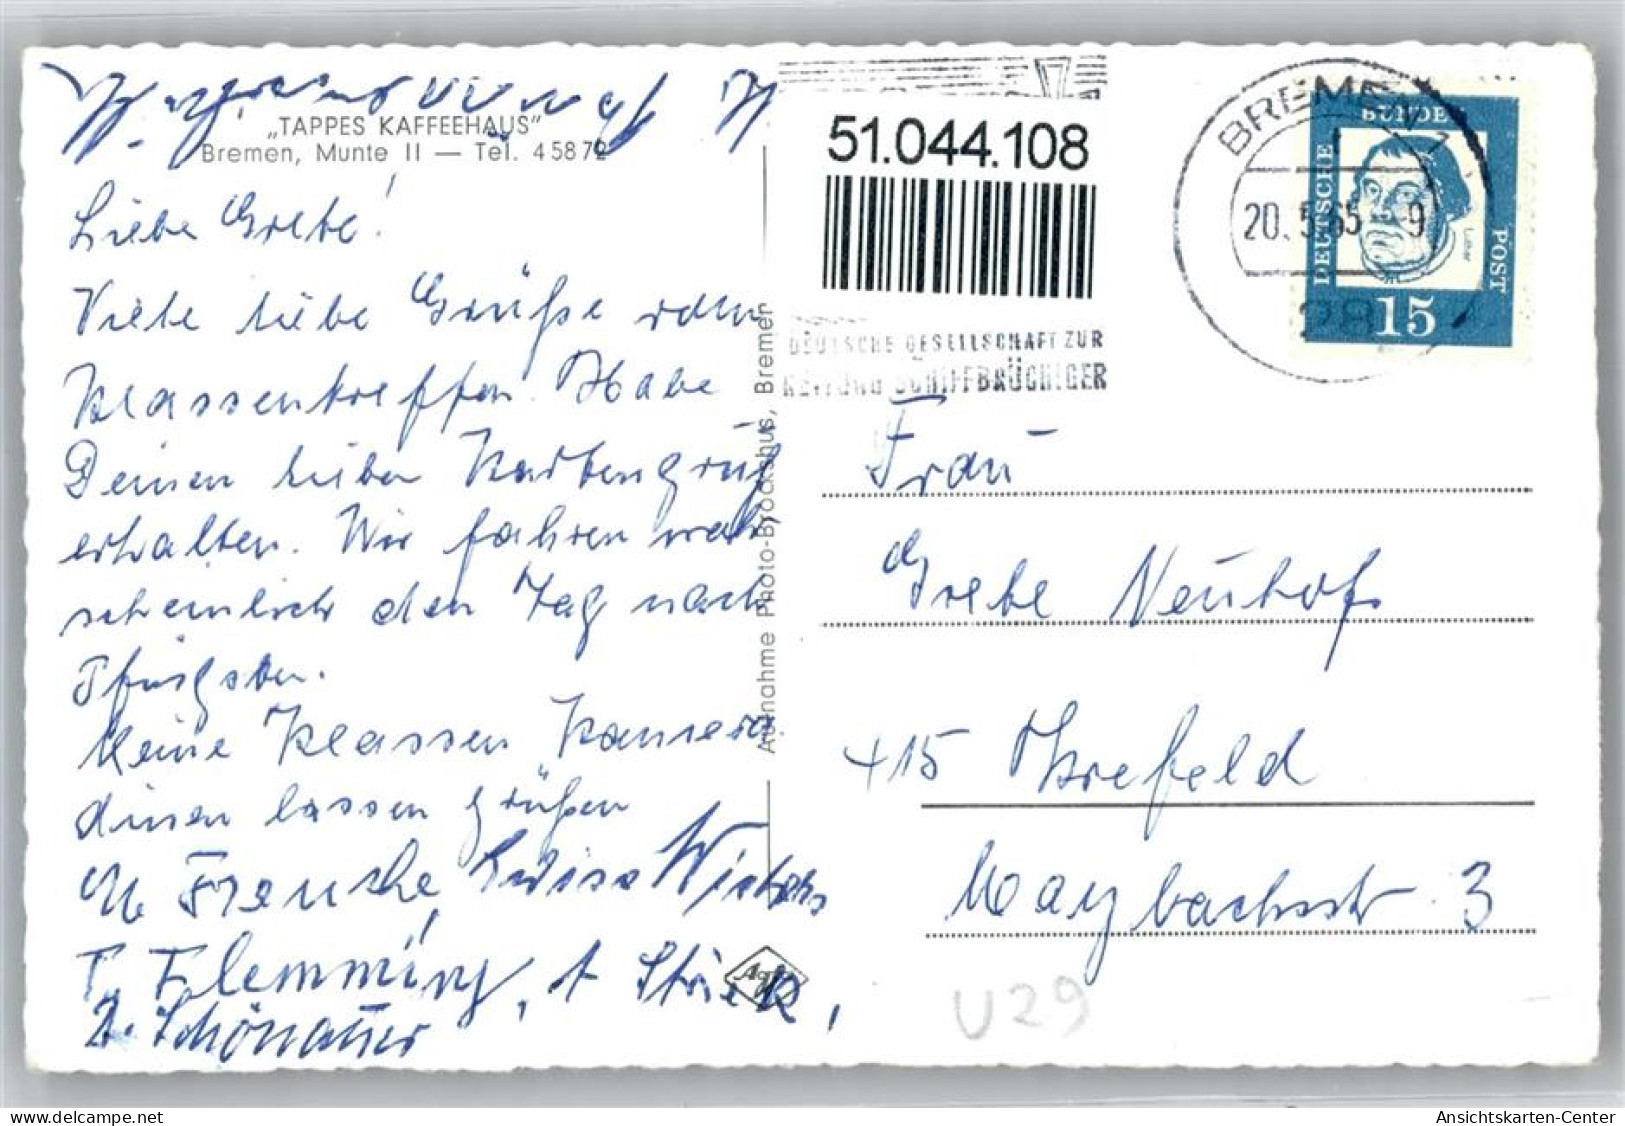 „TAPPES KAFFEEHAUS“
Bremen, Munte II — Tel. 45872
Liebe Grete!
Viele liebe Grüße vom
Klassentreffen. Habe
Deinen lieben Kartengruß
erhalten. Wir fahren wahr
scheinlich den Tag nach
Pfingsten.
Meine Klassen Kamera
dinnen lassen grüßen
Luise
T. Flemming, A
Schönauer
Aufnahme Photo-Brockshus, Bremen
Agfa
51.044.108
DEUTSCHE GESELLSCHAFT ZUR
RETTUNG SCHIFFBRÜCHIGER
BREMEN 1
20. 5. 65 - 9
28
DEUTSCHE
BUNDES
POST
Luther
15
Frau
Grete Neuhof
415 Krefeld
Maybachstr 3
U29
oldthing.de
Ansichtskarten-Center